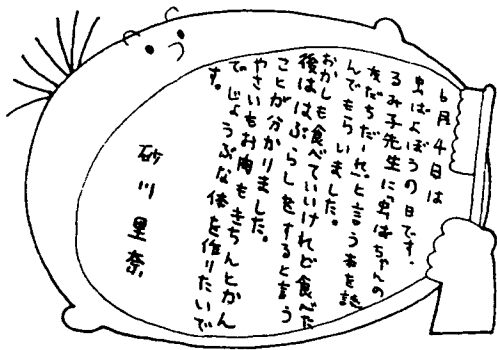 6月4日は
虫ばよぼうの日です。
るみ子先生に「虫ばちゃんの
友だちだーれ。」と言う本を読
んでもらいました。
おかしも食べていいけれど食べた
後ははぶらしをすると言う
ことが分かりました。
やさいもお肉もきちんとかん
で、じょうぶな体を作りたいで
す。
砂川里奈